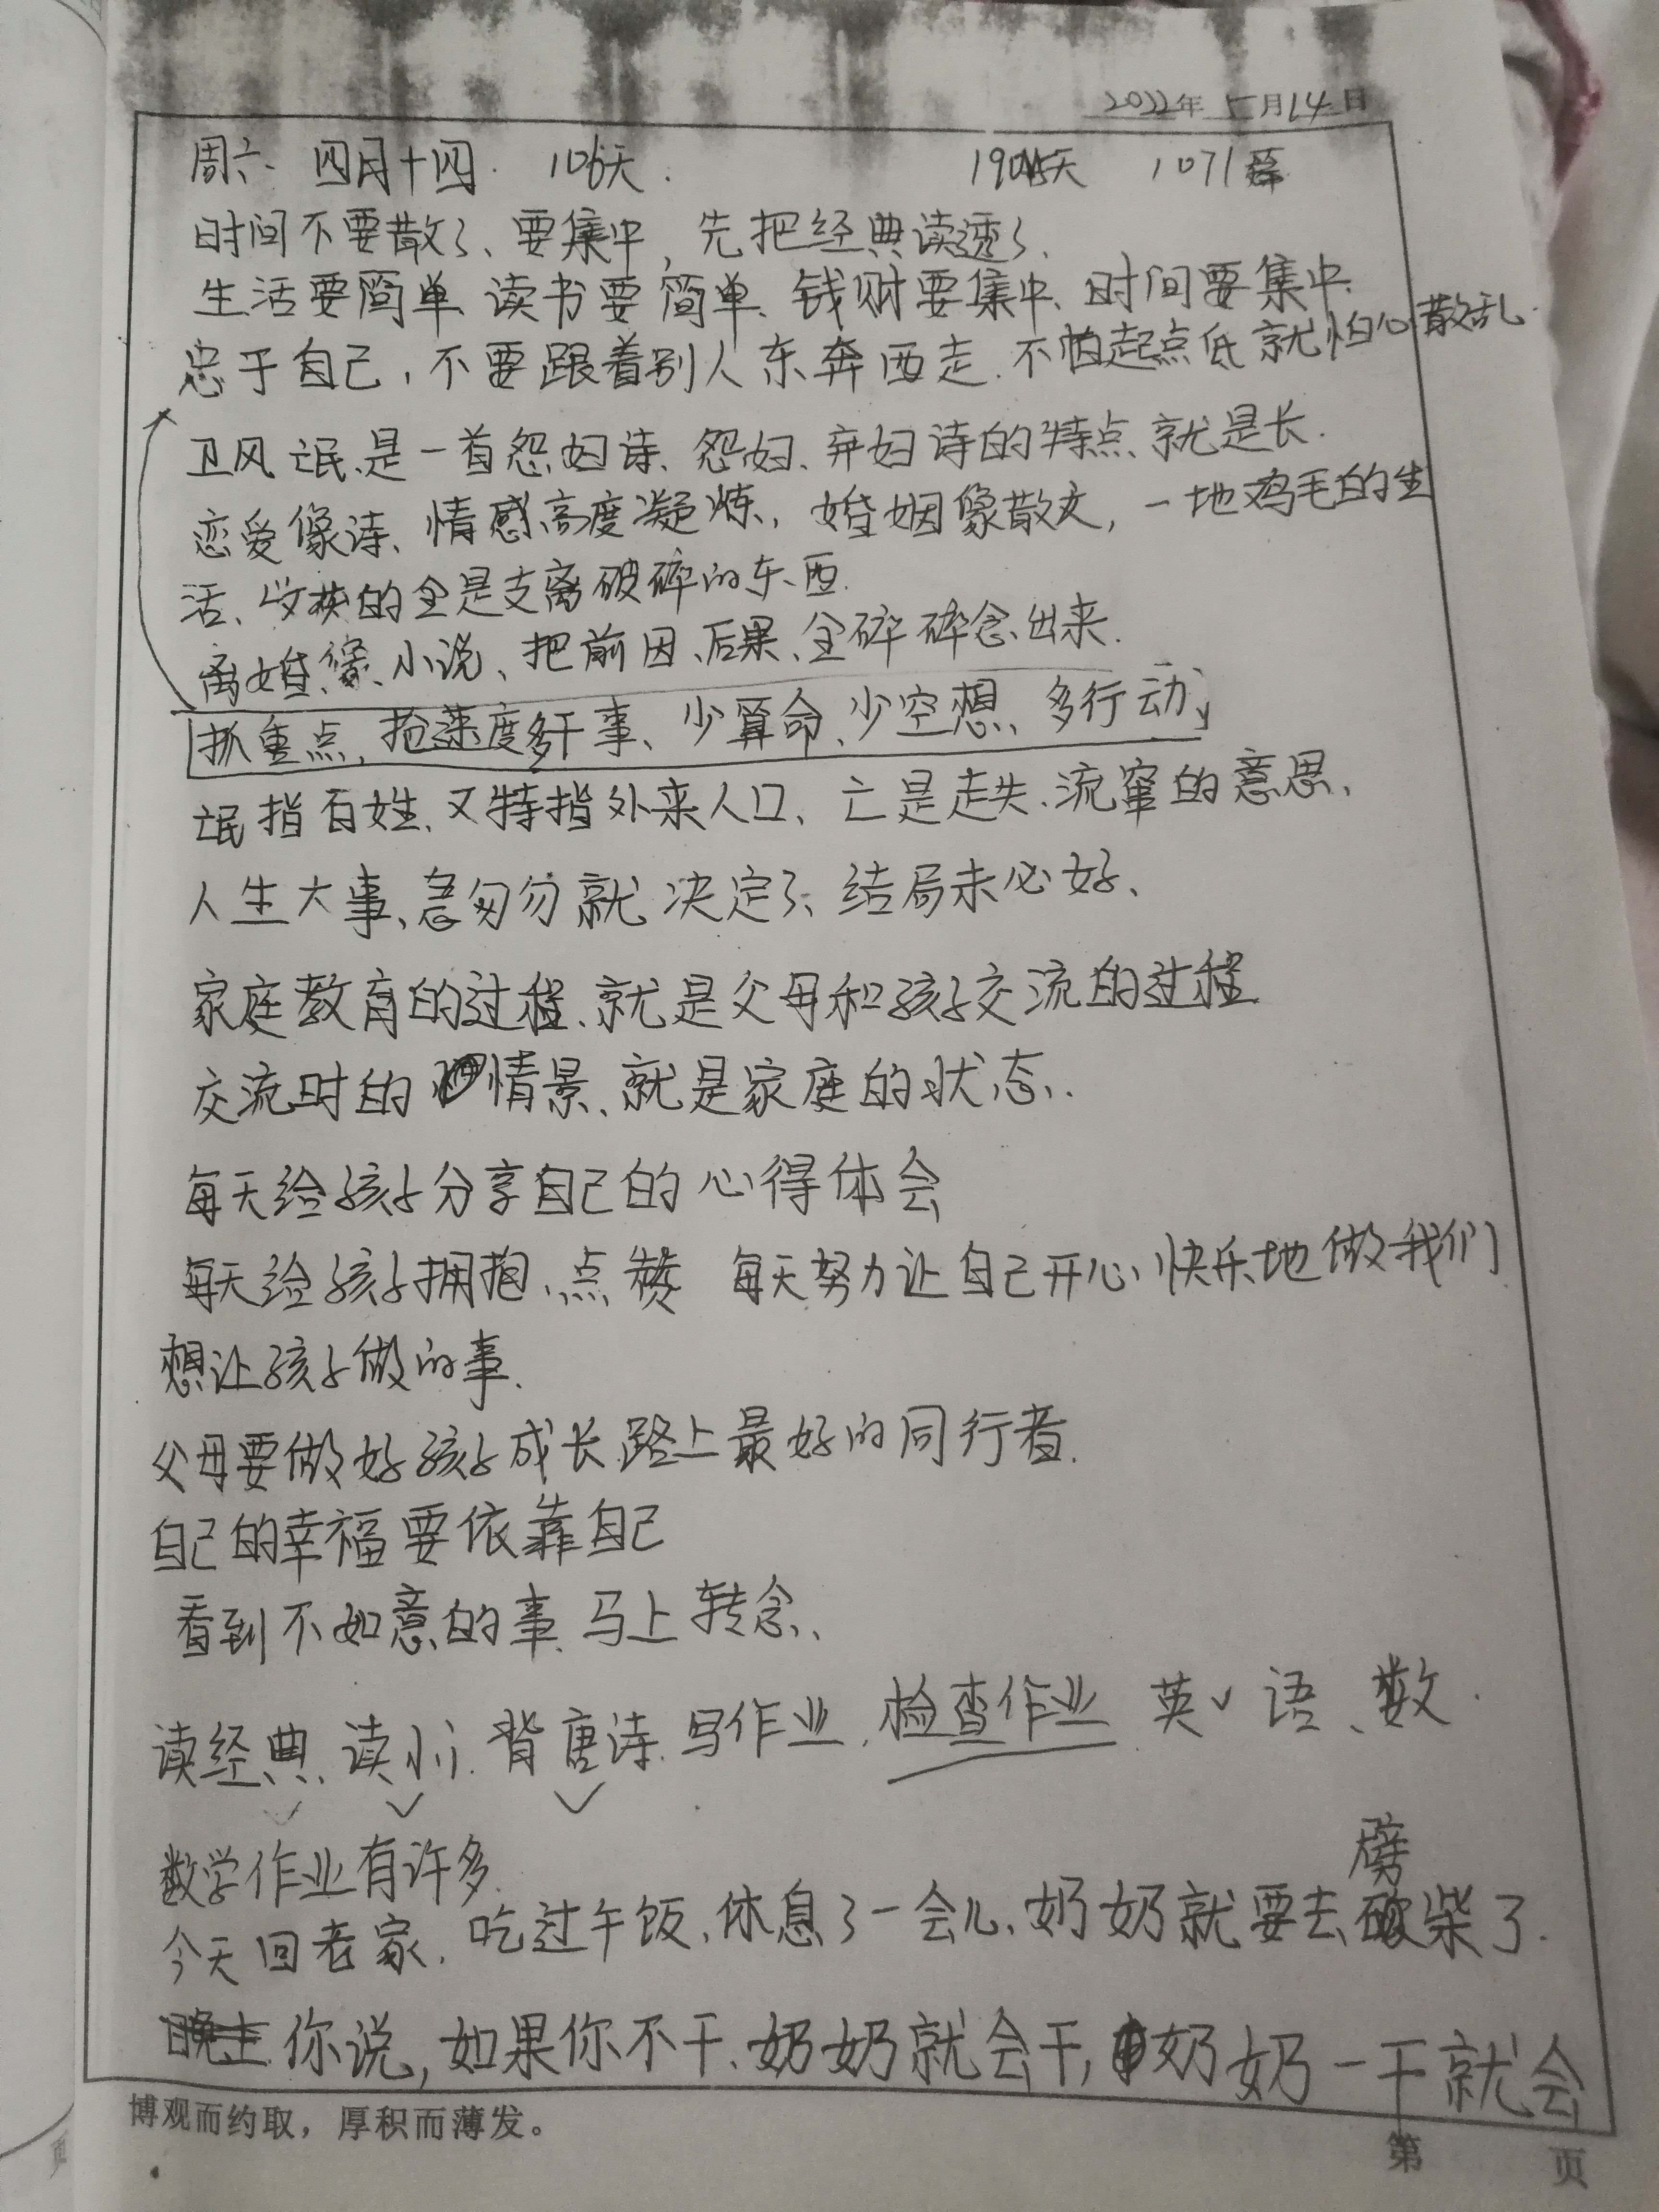 2022年5月14日
周六 四月十四. 106天. 1904天 1071篇
时间不要散了、要集中,先把经典读透了、
生活要简单、读书要简单、钱财要集中、时间要集中、
忠于自己,不要跟着别人东奔西走.不怕起点低就怕心散乱.
卫风 氓、是一首怨妇诗、怨妇、弃妇诗的特点、就是长.
恋爱像诗、情感高度凝炼,婚姻像散文,一地鸡毛的生
活、收获的全是支离破碎的东西.
离婚、像、小说、把前因、后果、全碎碎念出来.
抓重点,抢速度多干事、少算命、少空想、多行动,
氓指百姓、又特指外来人口、亡是走失、流窜的意思、
人生大事、急匆匆就决定了、结局未必好、
家庭教育的过程、就是父母和孩子交流的过程
交流时的情景、就是家庭的状态..
每天给孩子分享自己的心得体会
每天给孩子拥抱、点赞 每天努力让自己开心、快乐地做我们
想让孩子做的事.
父母要做好孩子成长路上最好的同行者.
自己的幸福要依靠自己
看到不如意的事.马上转念、
读经典、读小i.背唐诗.写作业.检查作业 英√语、数.
数学作业有许多.
劈
今天回老家.吃过午饭,休息了一会儿、奶奶就要去砍柴了.
晚上你说,如果你不干、奶奶就会干,奶奶一干就会
博观而约取,厚积而薄发。
第 页
页